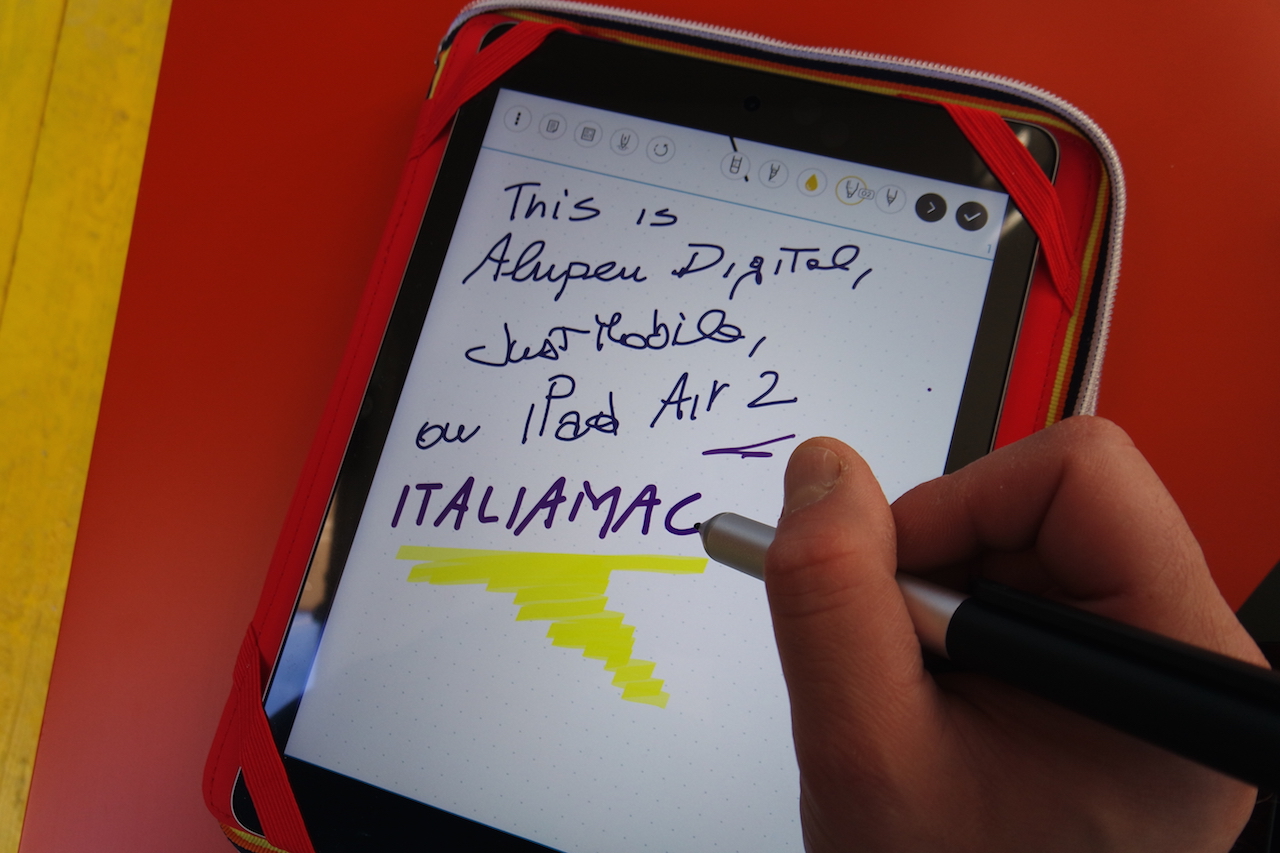 1
This is
Alupen Digital,
Just Mobile,
on iPad Air 2
ITALIAMAC